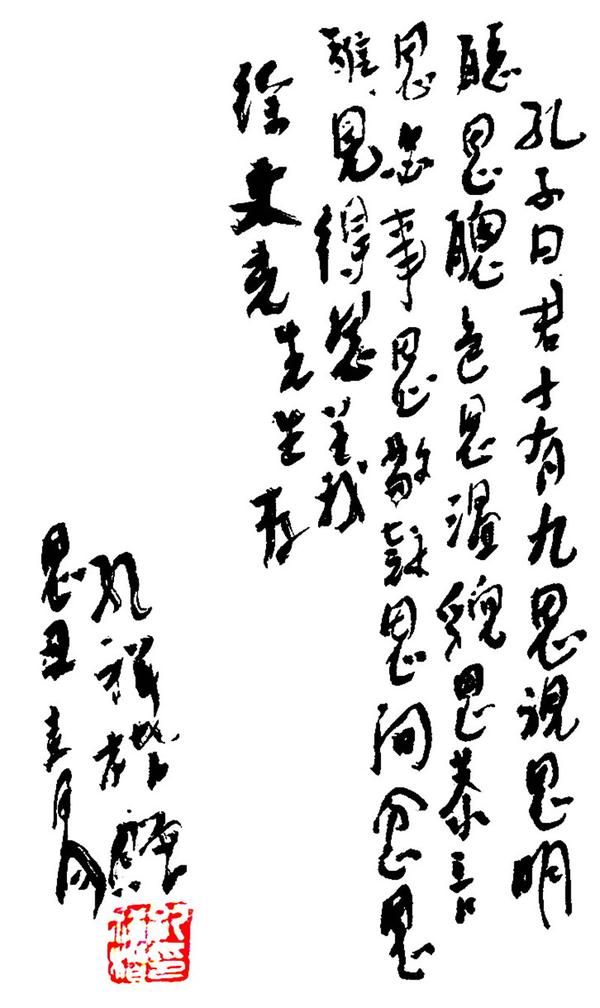 孔子曰君子有九思視思明
聽思聰色思溫貌思恭言
思忠事思敬疑思問忿思
難見得思義
徐先生存
孔祥
丑